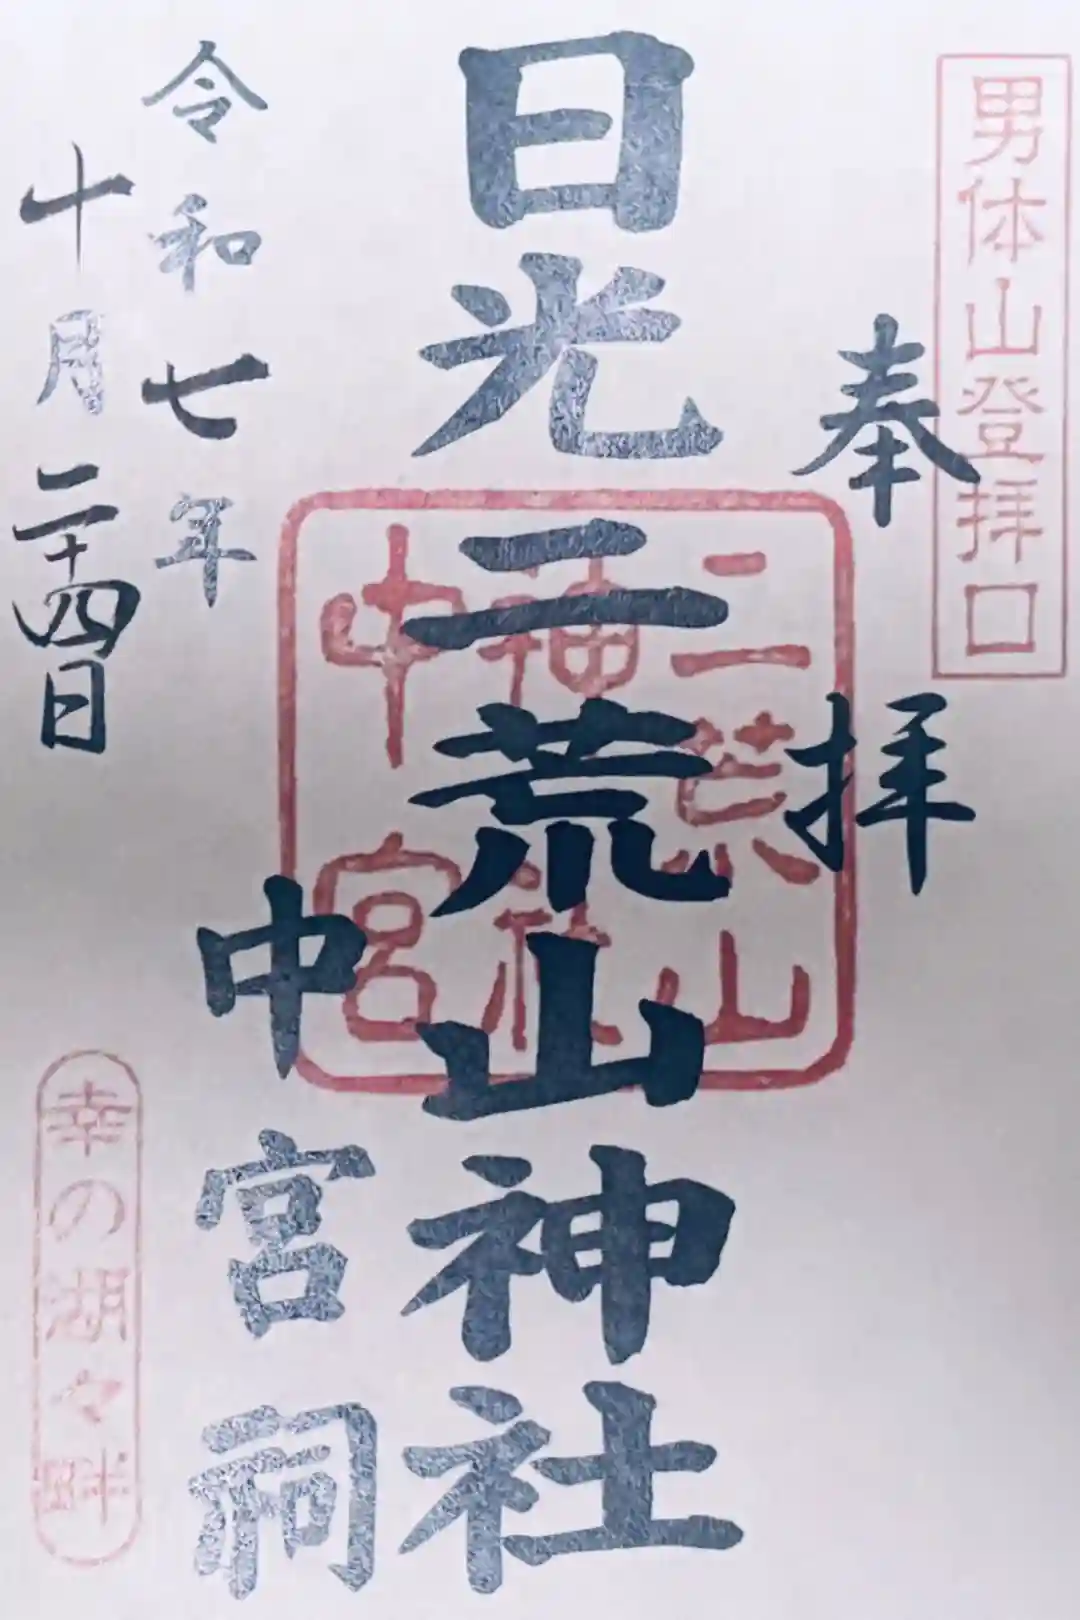 男体山登拝口
奉拝
日光二荒山神社
中宮祠
二荒山
神社
中宮
令和七年
十月二十四日
幸の湖々畔